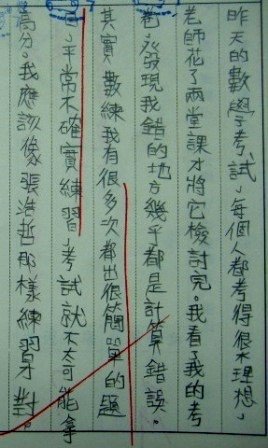 昨天的數學考試，每個人都考得很不理想，
老師花了兩堂課才將它檢討完。我看了我的考
卷，發現我錯的地方幾乎都是計算錯誤。
其實數練我有很多次都出很簡單的題
目，平常不確實練習，考試就不太可能拿
高分。我應該像張浩哲那樣練習才對。